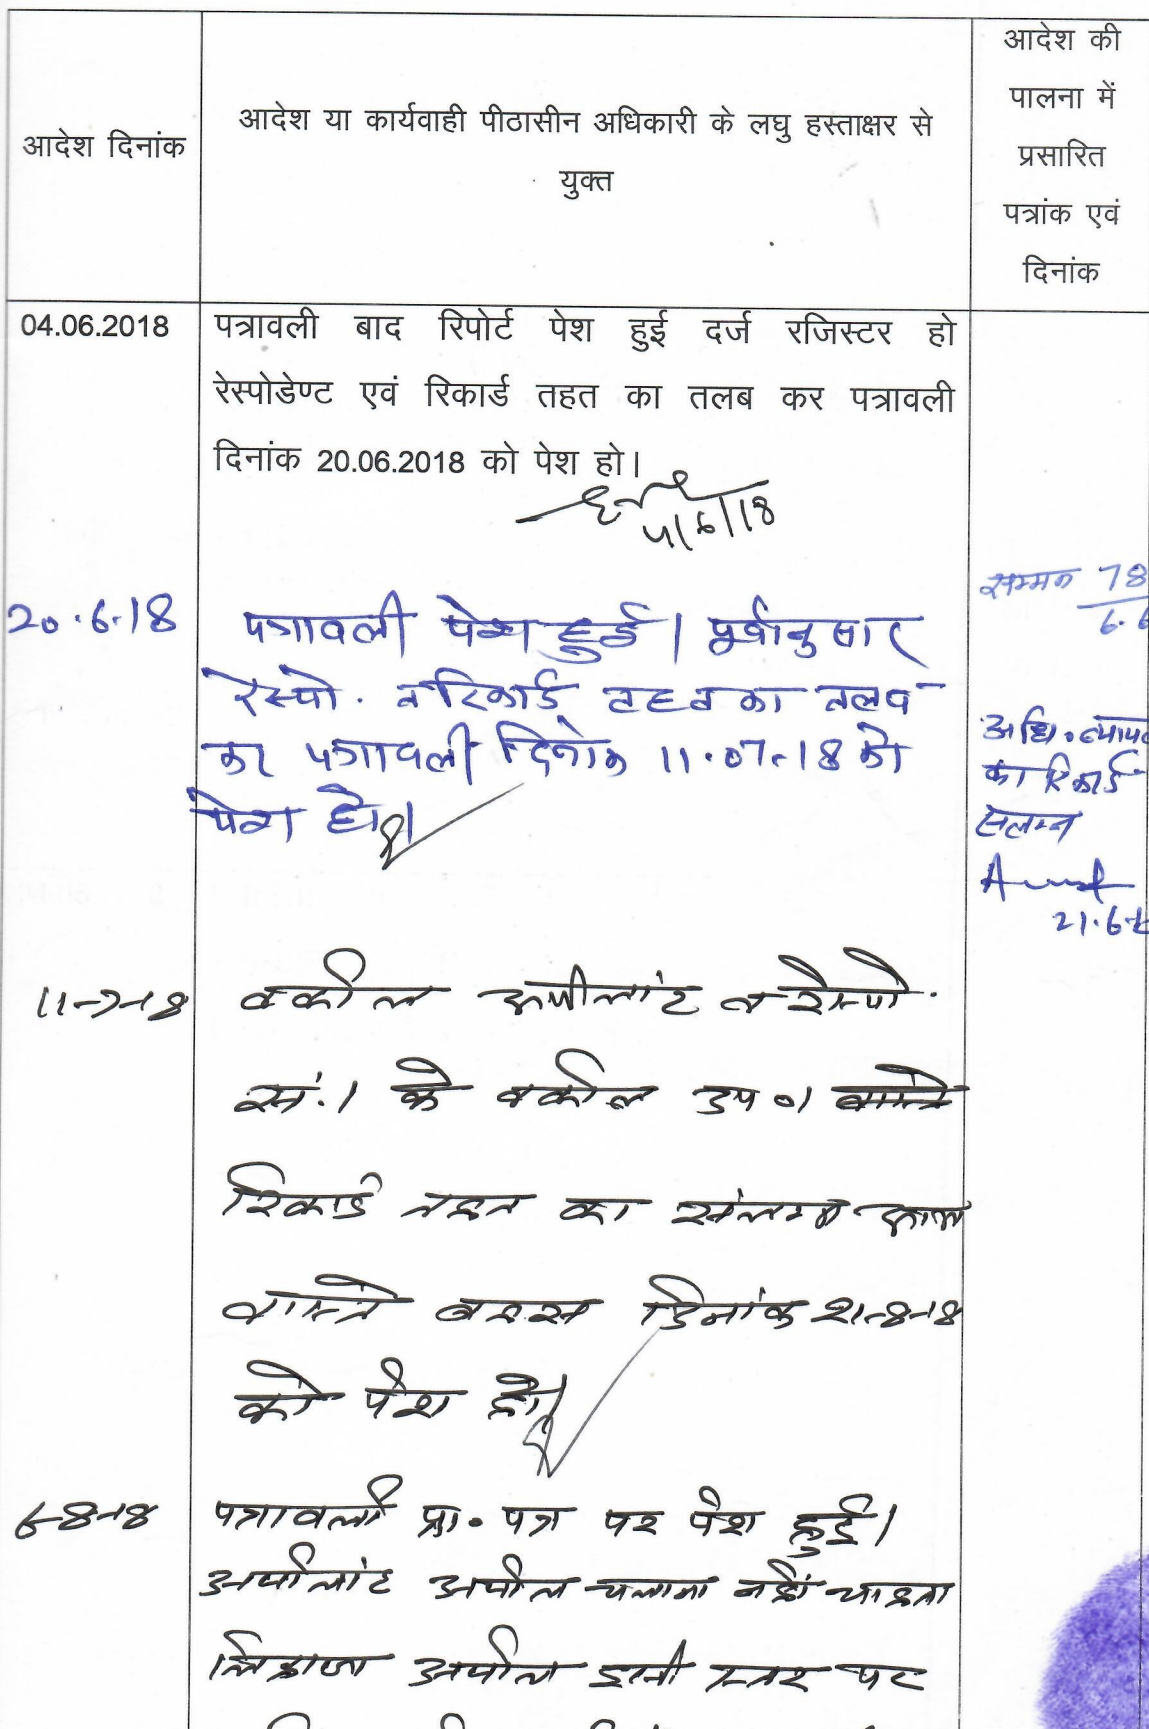 आदेश दिनांक
आदेश या कार्यवाही पीठासीन अधिकारी के लघु हस्ताक्षर से
युक्त
आदेश की
पालना में
प्रसारित
पत्रांक एवं
दिनांक
04.06.2018
पत्रावली बाद रिपोर्ट पेश हुई दर्ज रजिस्टर हो
रेस्पोडेण्ट एवं रिकार्ड तहत का तलब कर पत्रावली
दिनांक 20.06.2018 को पेश हो।
4/6/18
सम्मन 78
6.6
20.6.18
पत्रावली पेश हुई। पूर्वानुसार
रेस्पो. व रिकार्ड तहत का तलब
कर पत्रावली दिनांक 11.07.18 को
पेश हो।
अधि. न्याया
का रिकार्ड
सलग्न
21.6.18
11-7-18
वकील अपीलांट व रेस्पो.
सं. 1 के वकील उप०।
रिकार्ड तहत का संलग्न
वास्ते बहस दिनांक 21-8-18
को पेश हो।
6-8-18
पत्रावली प्रा. पत्र पर पेश हुई।
अपीलांट अपील चलाना नहीं चाहता
लिहाजा अपील इसी स्तर पर